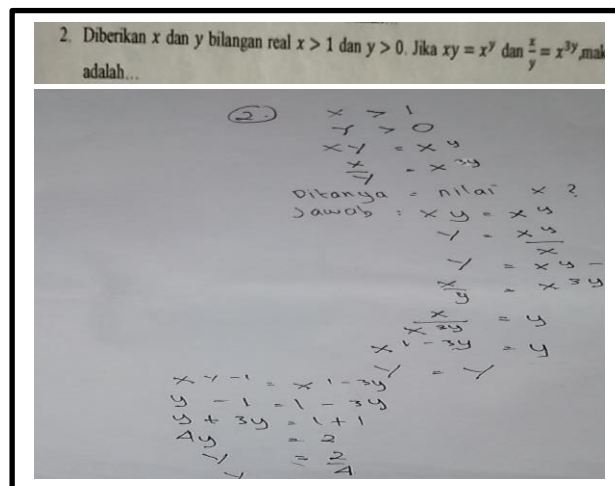 2. Diberikan x dan y bilangan real x > 1 dan y > 0. Jika xy = x^y dan x/y = x^3y, mak
adalah...
2.) x > 1
y > 0
xy = x^y
x/y = x^3y
Ditanya = nilai x ?
Jawab : xy = x^y
y = x^y/x
y = x^y -
x/y = x^3y
x/x^3y = y
x^1-3y = y
y = y
x^y-1 = x^1-3y
y - 1 = 1 - 3y
y + 3y = 1 + 1
4y = 2
y = 2/4
y